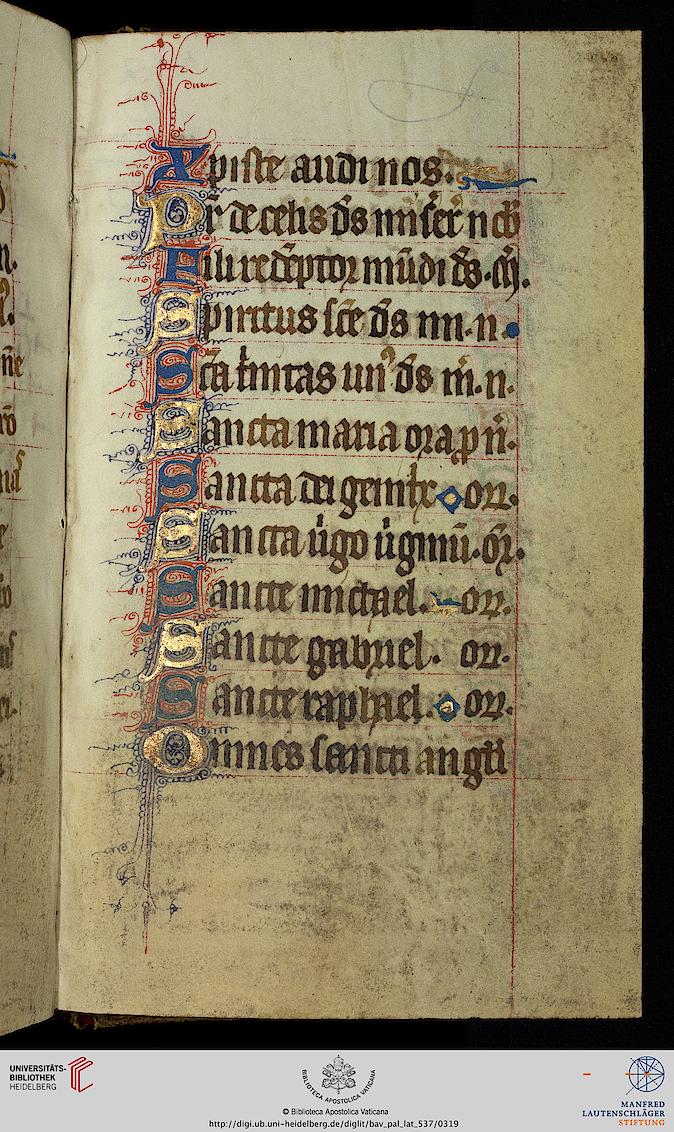 Xpiste audi nos.
Pr̄ de celis d̄s miser̄ nob̄
Fili redēptor mūdi d̄s. m̄.
Spiritus sc̄e d̄s mi. n.
Sc̄a t̄nitas un᾽ d̄s m̄. n.
Sancta maria ora p n̄.
Sancta dei genit̄x or̄.
Sancta ūgo ūginū. or̄.
Sancte michael. or̄.
Sancte gabriel. or̄.
Sancte raphael. or̄.
Omnes sancti angl̄i
UNIVERSITÄTS-
BIBLIOTHEK
HEIDELBERG
BIBLIOTECA APOSTOLICA VATICANA
© Biblioteca Apostolica Vaticana
http://digi.ub.uni-heidelberg.de/diglit/bav_pal_lat_537/0319
MANFRED
LAUTENSCHLÄGER
STIFTUNG